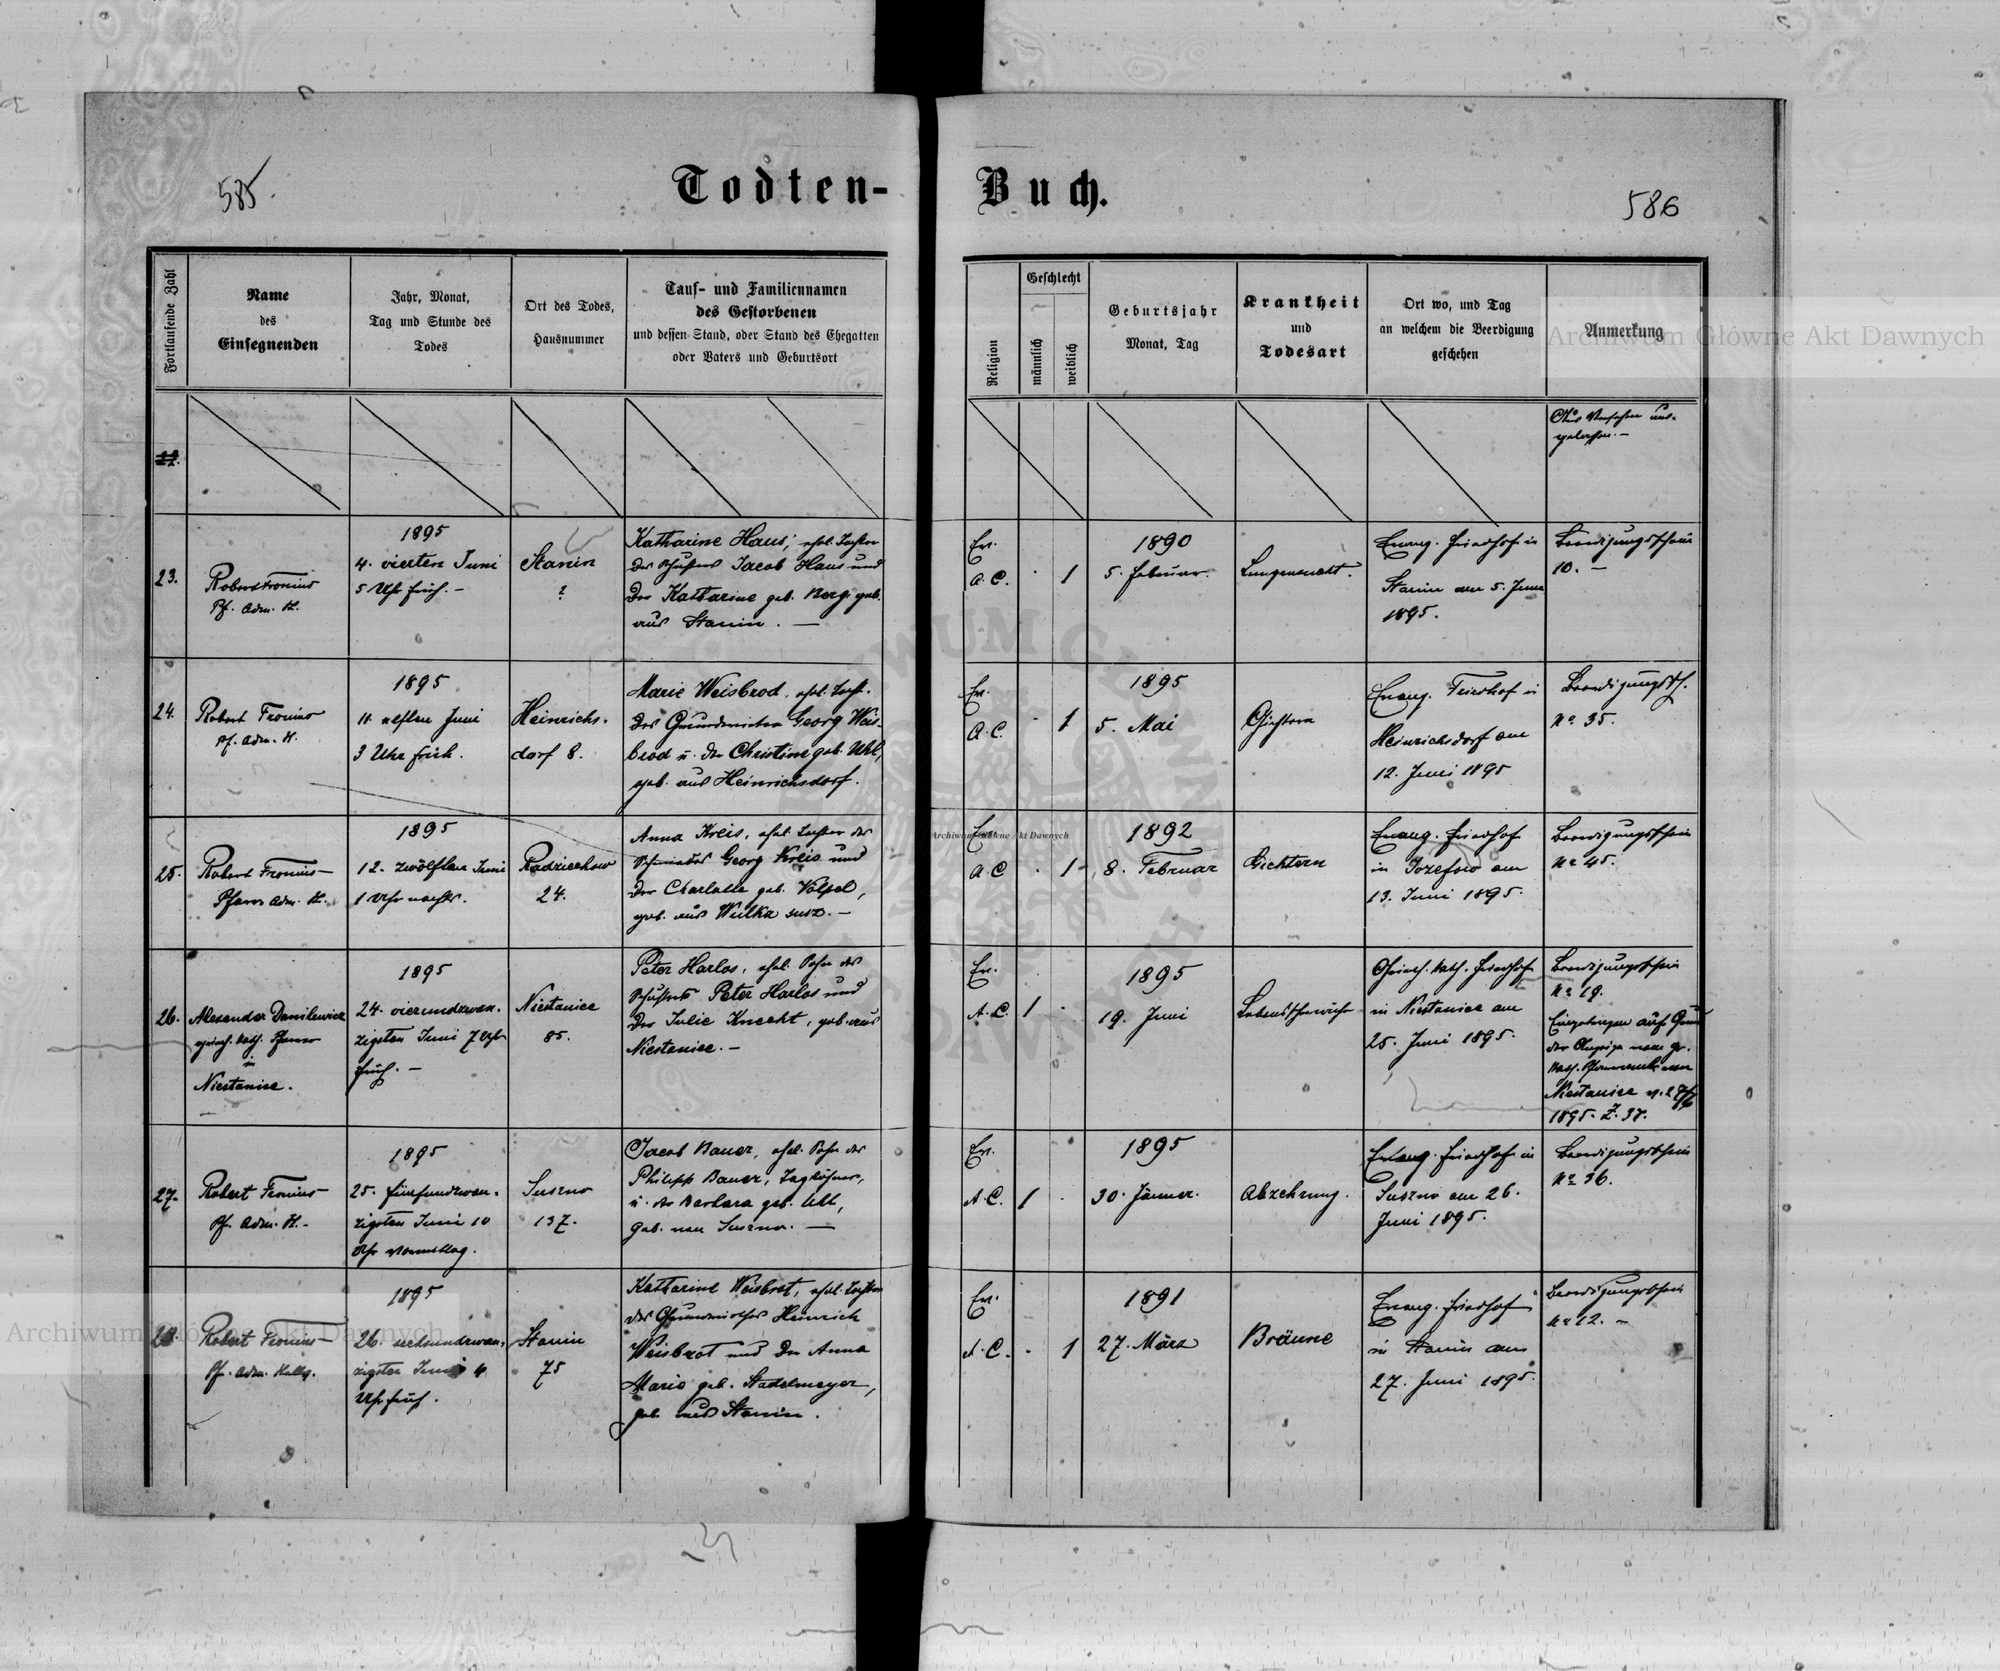 585.
Todten-
Buch.
586
Fortlaufende Zahl
Name
des
Einsegnenden
Jahr, Monat,
Tag und Stunde des
Todes
Ort des Todes,
Hausnummer
Tauf- und Familiennamen
des Gestorbenen
und dessen Stand, oder Stand des Ehegatten
oder Vaters und Geburtsort
Religion
Geschlecht
männlich
weiblich
Geburtsjahr
Monat, Tag
Krankheit
und
Todesart
Ort wo, und Tag
an welchem die Beerdigung
geschehen
Anmerkung
Archiwum Główne Akt Dawnych
Aus Versehen aus-
gelassen.-
23.
Robert Fronius
Pf. Adm. H.
1895
4. vierten Juni
5 Uhr früh.-
Stanin
?
Katharine Haus, ehel. Tochter
des Jacob Haus und
der Katharine geb. Berg, geb.
aus Stanin. —
Ev.
A. C.
1
1890
5. Februar.
Lungensucht.
Evang. Friedhof in
Stanin am 5. Juni
1895.
Beerdigungsschein
10. —
24.
Robert Fronius
Pf. Adm. H.
1895
11. elften Juni
3 Uhr früh.
Heinrichs-
dorf 8.
Marie Weisbrod, ehel. Tocht.
des Grundwirten Georg Weis-
brod u. der Christine geb. Uhl,
geb. aus Heinrichsdorf.
Ev.
A. C.
1
1895
5. Mai
Gichtern
Evang. Friedhof in
Heinrichsdorf am
12. Juni 1895
Beerdigungssch.
No 35.
25.
Robert Fronius
Pfarr Adm. H.
1895
12. zwölften Juni
1 Uhr nachts.
Radziechow
24.
Anna Kreis, ehel. Tochter des
Schmiedes Georg Kreis und
der Charlotte geb. Völpel,
geb. aus Wulka susz.-
Archiwum Główne Akt Dawnych
Ev.
A C
1
1892
8. Februar
Gichtern
Evang. Friedhof
in Jozefow am
13. Juni 1895.
Beerdigungsschein
No 45.
26.
Alexander Danilewicz
griech. kath. Pfarrer
in
Niestanice.
1895
24. vierundzwan-
zigsten Juni 7 Uhr
früh.-
Niestanice
85.
Peter Harlos, ehel. Sohn des
Peter Harlos und
der Julie Knecht, geb. aus
Niestanice.-
Ev.
A. C.
1
1895
19. Juni
Lebensschwäche
Griech. kath. Friedhof
in Niestanice am
25. Juni 1895.
Beerdigungsschein
No 19.
Eingetragen auf Grund
der Anzeige vom gr.
kath. Pfarramt
Niestanice
1895. Z. 37.
27.
Robert Fronius
Pf. Adm. H.-
1895
25. fünfundzwan-
zigsten Juni 10
Uhr vormittag.
Suszno
137.
Jacob Bauer, ehel. Sohn des
Philipp Bauer, Taglöhner,
u. der Barbara geb. Uhl,
geb. von Suszno. —
Ev.
A. C.
1
1895
30. Jänner.
Abzehrung.
Evang. Friedhof in
Suszno am 26.
Juni 1895.
Beerdigungsschein
No 36.
28
Robert Fronius
Pf. Adm.
1895
26. sechsundzwan-
zigsten Juni 4
Uhr früh.
Stanin
75
Katharine Weisbrot, ehel. Tochter
des Grundwirthes Heinrich
Weisbrot und der Anna
Marie geb. Stadelmeyer,
geb. aus Stanin.
Ev.
A. C.
1
1891
27. März
Bräune
Evang. Friedhof
in Stanin am
27. Juni 1895.
Beerdigungsschein
No 12. -
Archiwum Główne Akt Dawnych